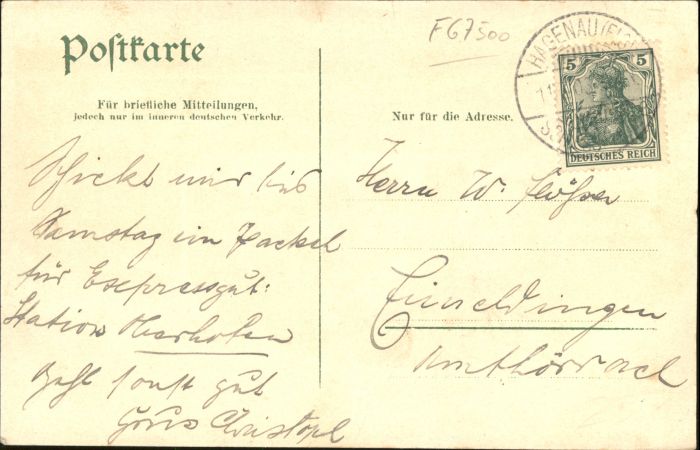 Postkarte
FG7500
HAGENAU (ELS
5 5
DEUTSCHES REICH
Für briefliche Mitteilungen,
jedoch nur im inneren deutschen Verkehr.
Nur für die Adresse.
Schickt mir bis
Samstag ein Packet
für Expressgut:
Station Oberhofen
Geht sonst gut
Christoph
Herrn W.
Eimeldingen
Amt Lörrach